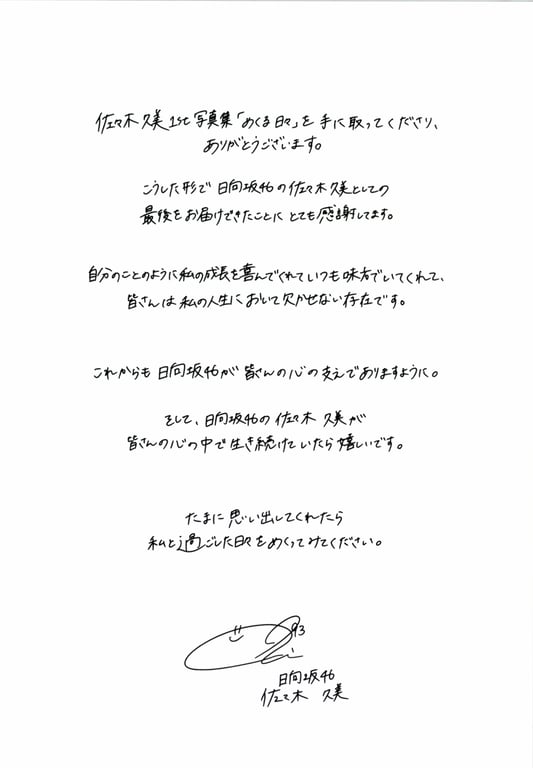 佐々木久美1st写真集「めくる日々」を手に取ってくださり、
ありがとうございます。
こうした形で日向坂46の佐々木久美としての
最後をお届けできたことにとても感謝してます。
自分のことのように私の成長を喜んでくれていつも味方でいてくれて、
皆さんは私の人生において欠かせない存在です。
これからも日向坂46が皆さんの心の支えでありますように。
そして、日向坂46の佐々木久美が
皆さんの心の中で生き続けていたら嬉しいです。
たまに思い出してくれたら
私と過ごした日々をめくってみてください。
93
日向坂46
佐々木 久美